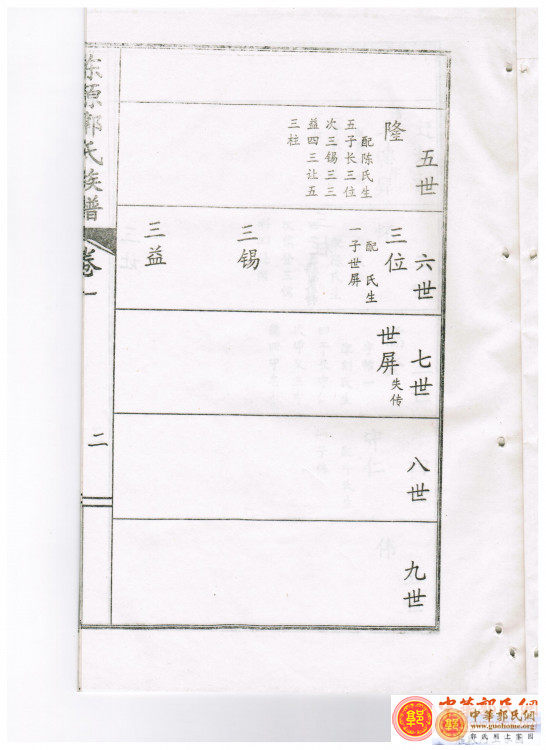 东源郭氏族谱
卷一
二
五世
隆
配陈氏生
五子长三位
次三锡三三
益四三让五
三柱
六世
三位
配 氏生
一子世屏
三锡
三益
七世
世屏
失传
八世
九世
中華郭氏網
www.guohome.org